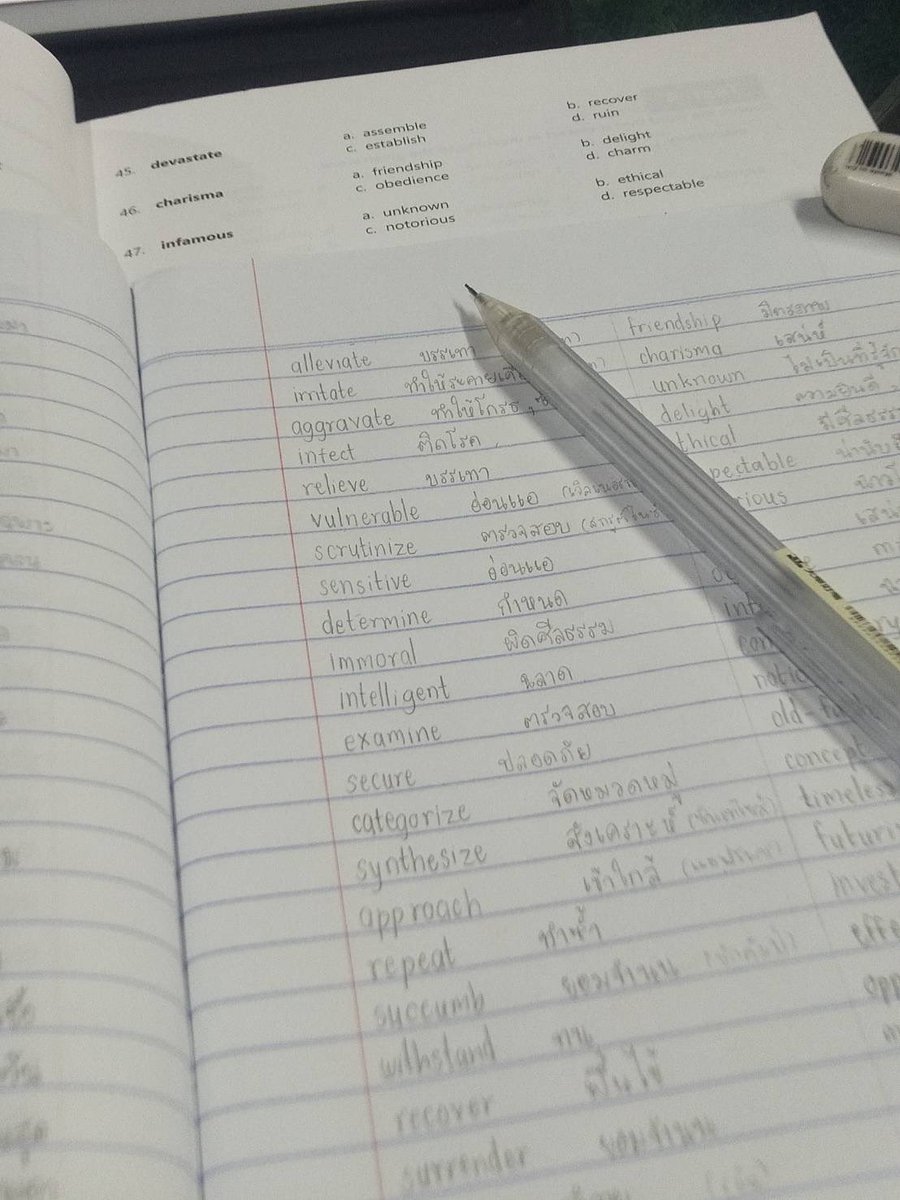 45. devastate a. assemble b. recover
c. establish d. ruin
46. charisma a. friendship b. delight
c. obedience d. charm
47. infamous a. unknown b. ethical
c. notorious d. respectable
alleviate บรรเทา friendship มิตรภาพ
irritate ทำให้ระคายเคือ charisma เสน่ห์
aggravate ทำให้โกรธ unknown ไม่เป็นที่รู้จัก
infect ติดโรค delight ความยินดี
relieve บรรเทา thical มีศีลธรรม
vulnerable อ่อนแอ pectable น่านับ
scrutinize ตรวจสอบ rious
sensitive อ่อนแอ เสน่
determine กำหนด
immoral ผิดศีลธรรม
intelligent ฉลาด
examine ตรวจสอบ
secure ปลอดภัย old-fa
categorize จัดหมวดหมู่ concept
synthesize สังเคราะห์ timeless
approach เข้าใกล้ futuri
repeat ทำซ้ำ invest
succumb ยอมจำนน effe
withstand ทน opp
recover ฟื้นไข้
surrender ยอมจำนน